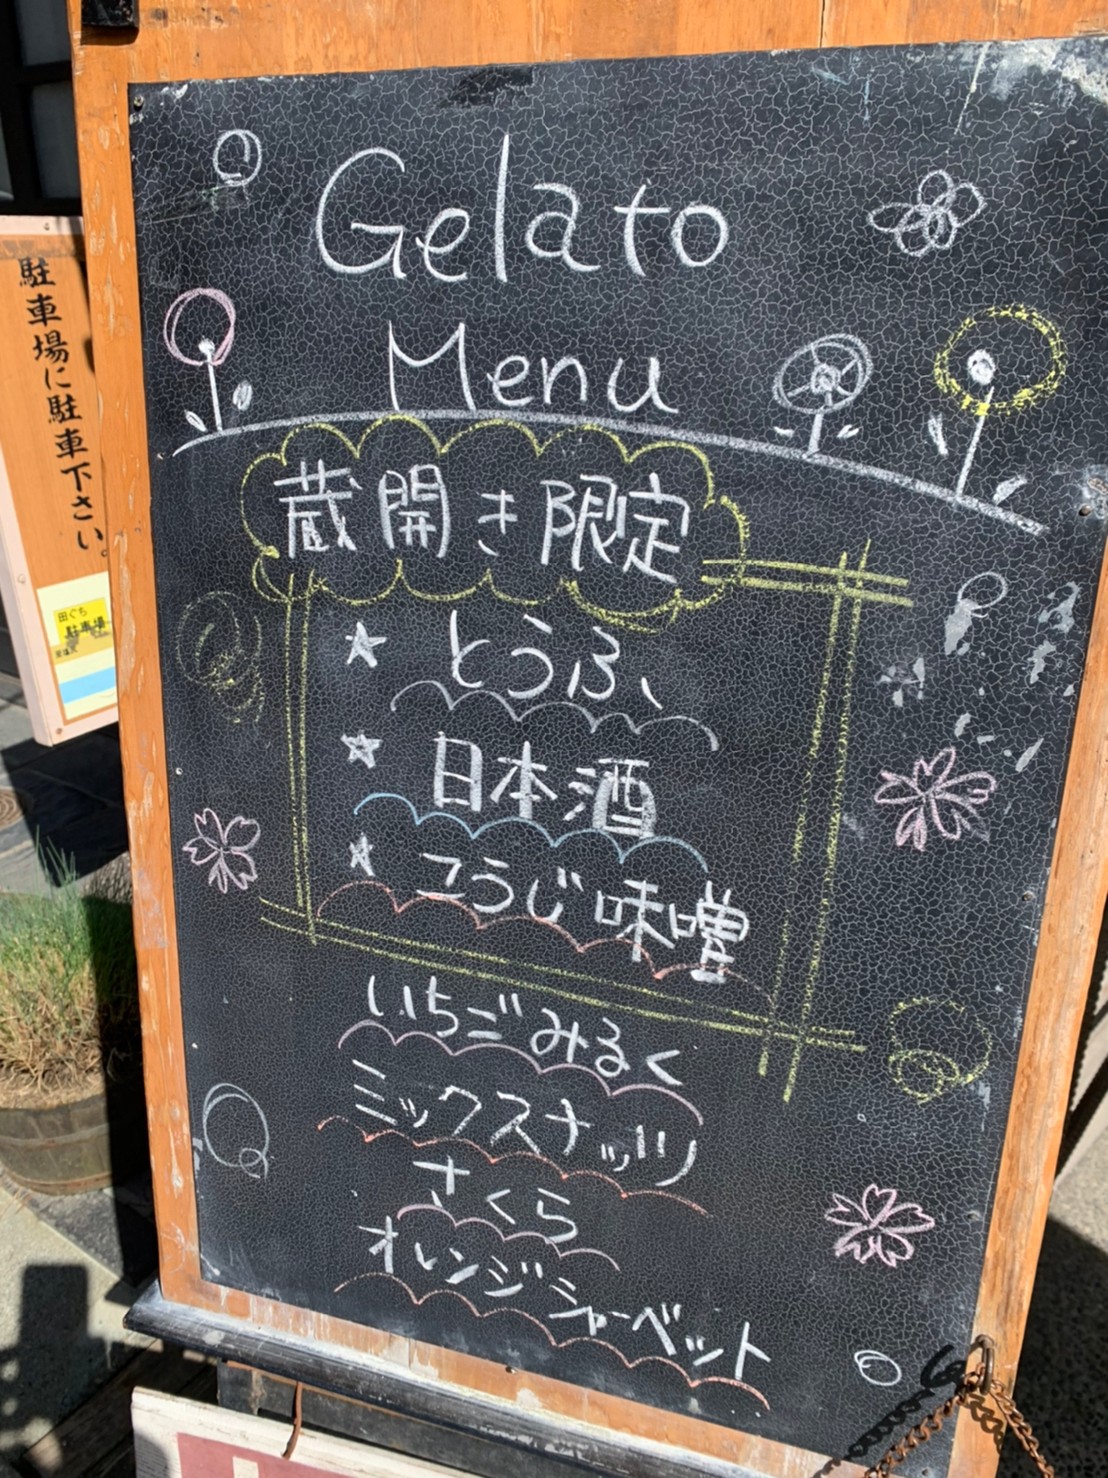 Gelato
Menu
蔵開き限定
とうふ
日本酒
こうじ味噌
いちごみるく
ミックスナッツ
さくら
オレンジシャーベット
駐車場に駐車下さい。
田ぐち
駐車場